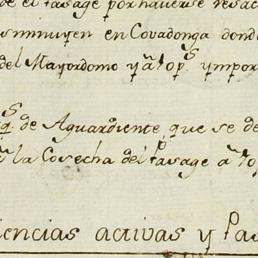 de el Pasage por haverse resac
isminuyen en Covadonga dond
del Mayordomo y â 10 p.s ympor
q.s de Aguardiente, que se de
la Cosecha del Pasage a
iencias activas y Pas